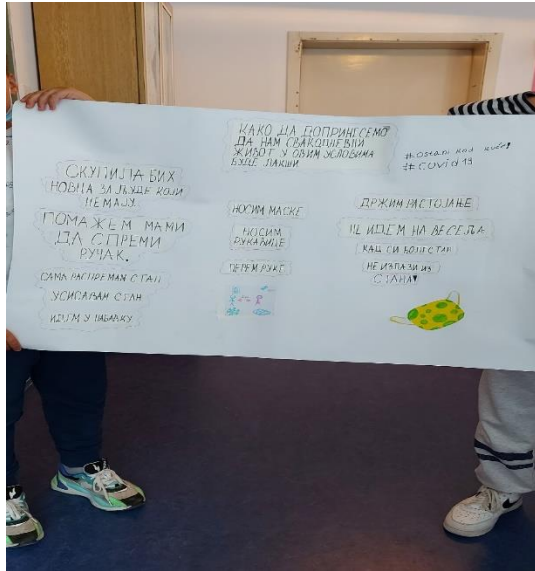 КАКО ДА ДОПРИНЕСЕМО
ДА НАМ СВАКОДНЕВНИ
ЖИВОТ У ОВИМ УСЛОВИМА
БУДЕ ЛАКШИ
#Ostani kod kuće
#Covid 19
СКУПИЛА БИХ
НОВЦА ЗА ЉУДЕ КОЈИ
НЕМАЈУ.
ПОМАЖЕМ МАМИ
ДА СПРЕМИ
РУЧАК.
САМА РАСПРЕМАМ СТАН
УСИСАВАМ СТАН
ИДЕМ У НАБАВКУ
НОСИМ МАСКЕ
НОСИМ
РУКАВИЦЕ
ПЕРЕМ РУКЕ
ДРЖИМ РАСТОЈАЊЕ
НЕ ИДЕМ НА ВЕСЕЉА
КАД СИ БОЛЕСТАН
НЕ ИЗЛАЗИ ИЗ
СТАНА!